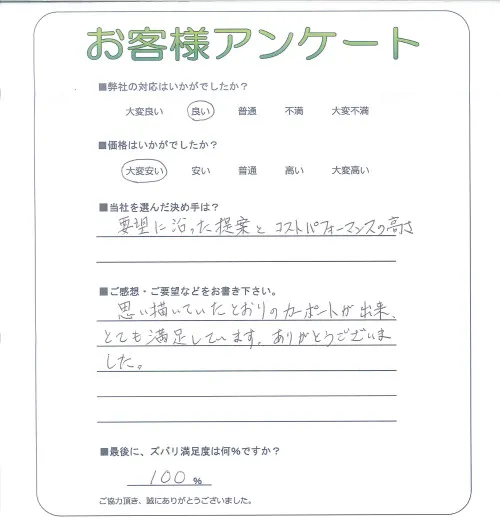 お客様アンケート
■弊社の対応はいかがでしたか？
大変良い 良い 普通 不満 大変不満
■価格はいかがでしたか？
大変安い 安い 普通 高い 大変高い
■当社を選んだ決め手は？
要望に沿った提案とコストパフォーマンスの高さ
■ご感想・ご要望などをお書き下さい。
思い描いていたとおりのカーポートが出来、
とても満足しています。ありがとうございま
した。
■最後に、ズバリ満足度は何%ですか？
100 %
ご協力頂き、誠にありがとうございました。